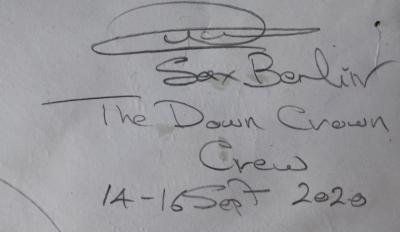 Sax Berlin
The Down Crown
Crew
14-16 Sept 2020